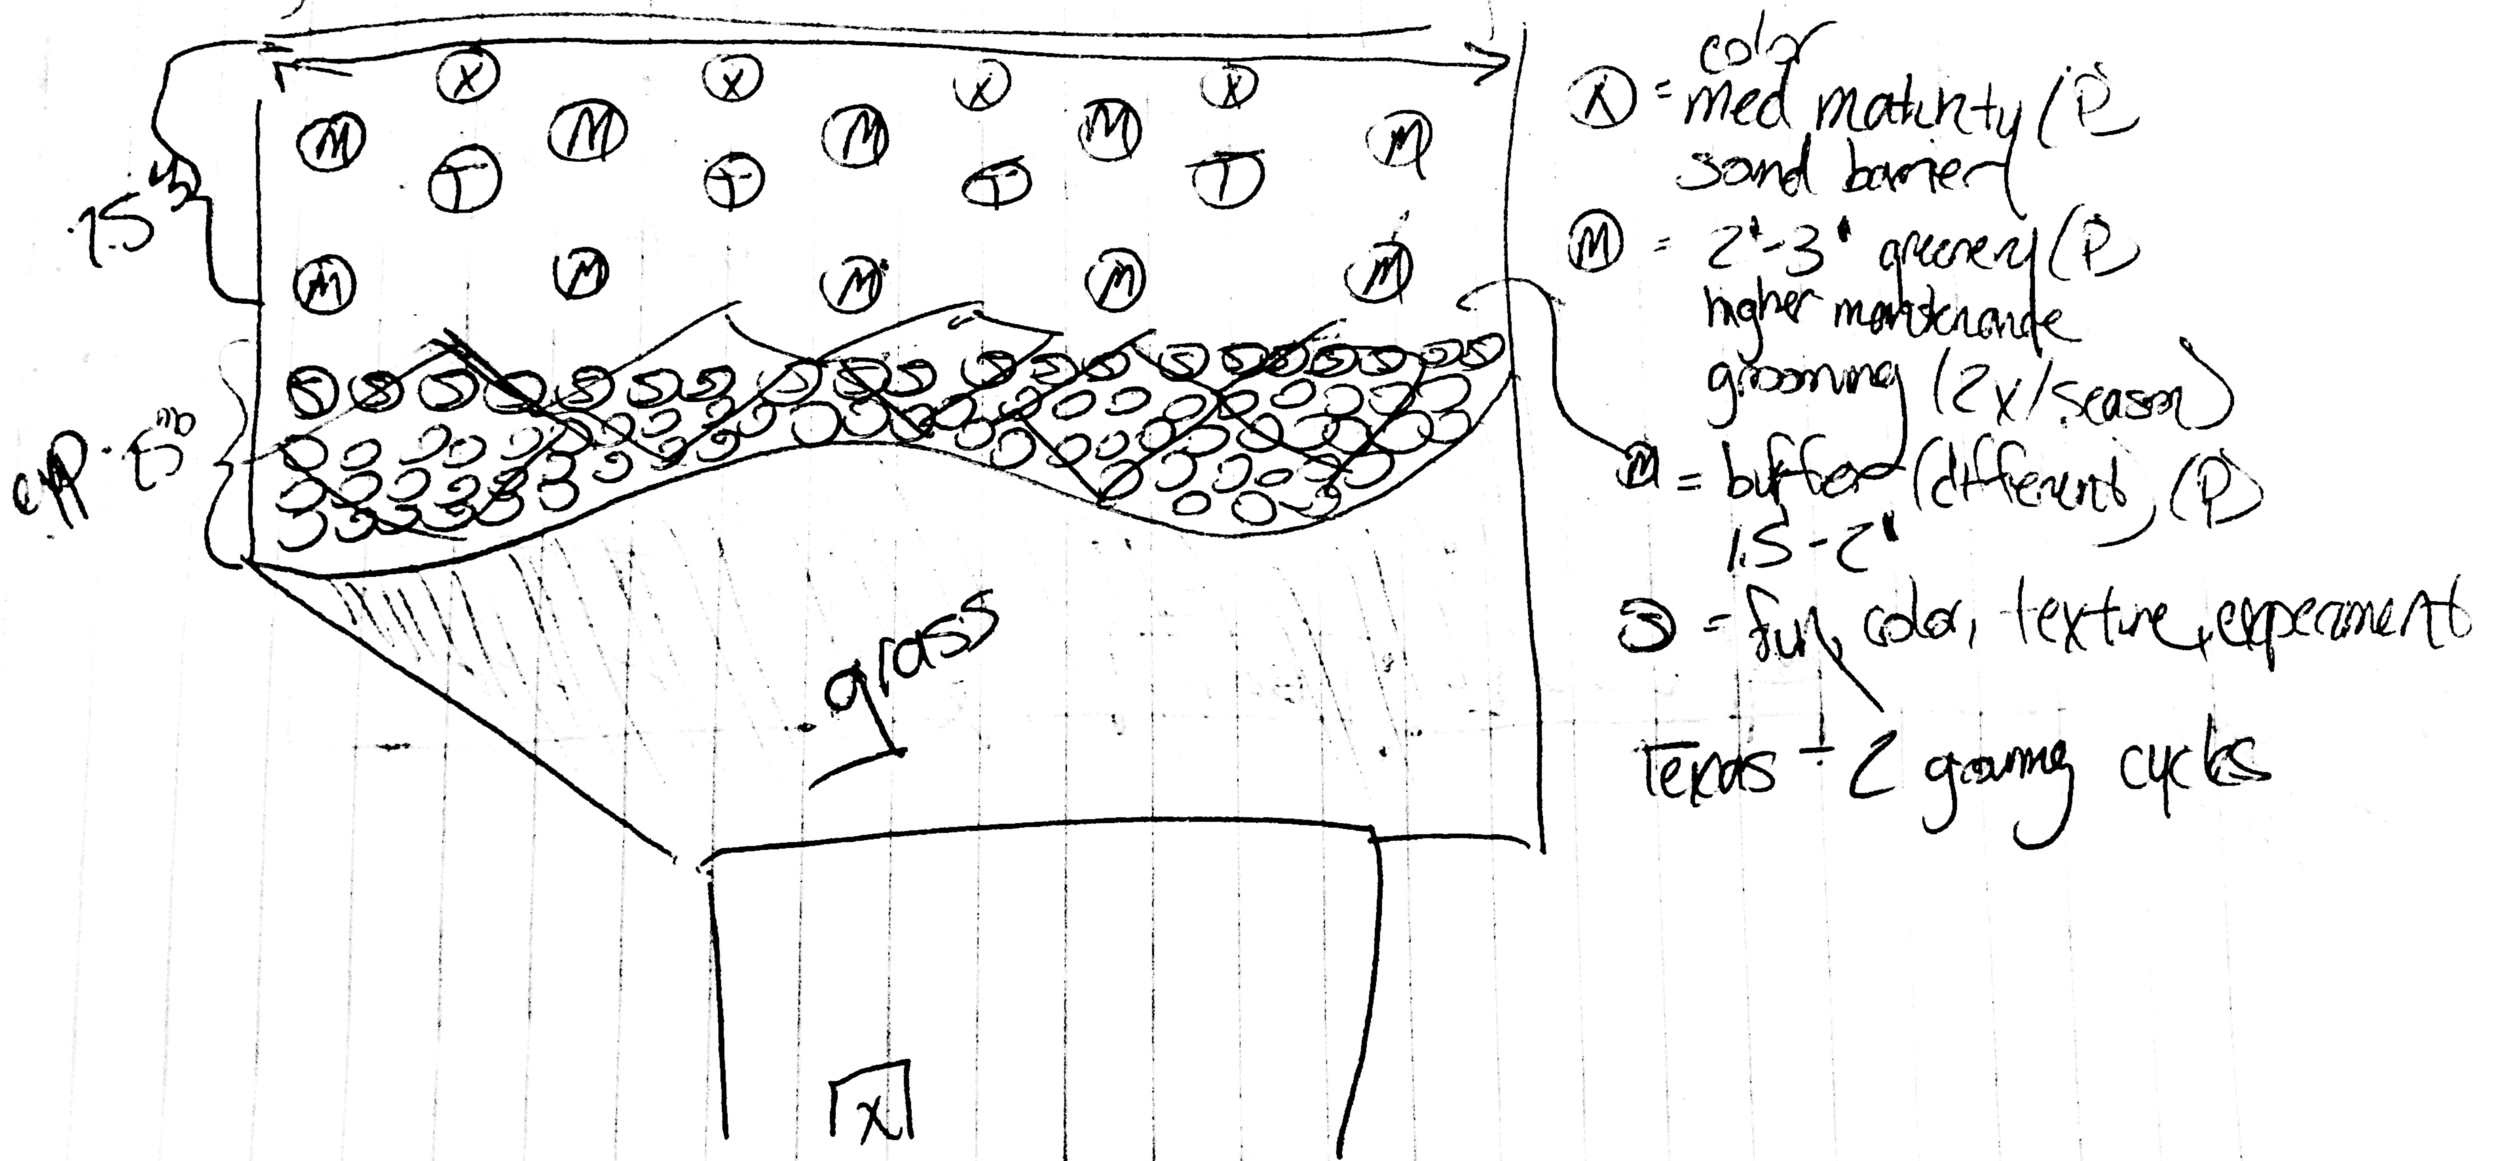 X X X X
M M M M M
T T T T
M M M M M
S S S S S S S S S S S S S S S S S
grass
X
color
X = med maturity (P)
sound barrier
M = 2'-3' greenery (P)
higher maintenance
grooming (2x/season)
M = buffer (different) (P)
1.5-2'
S = fun, color, texture, experiment
Texas - 2 growing cycles